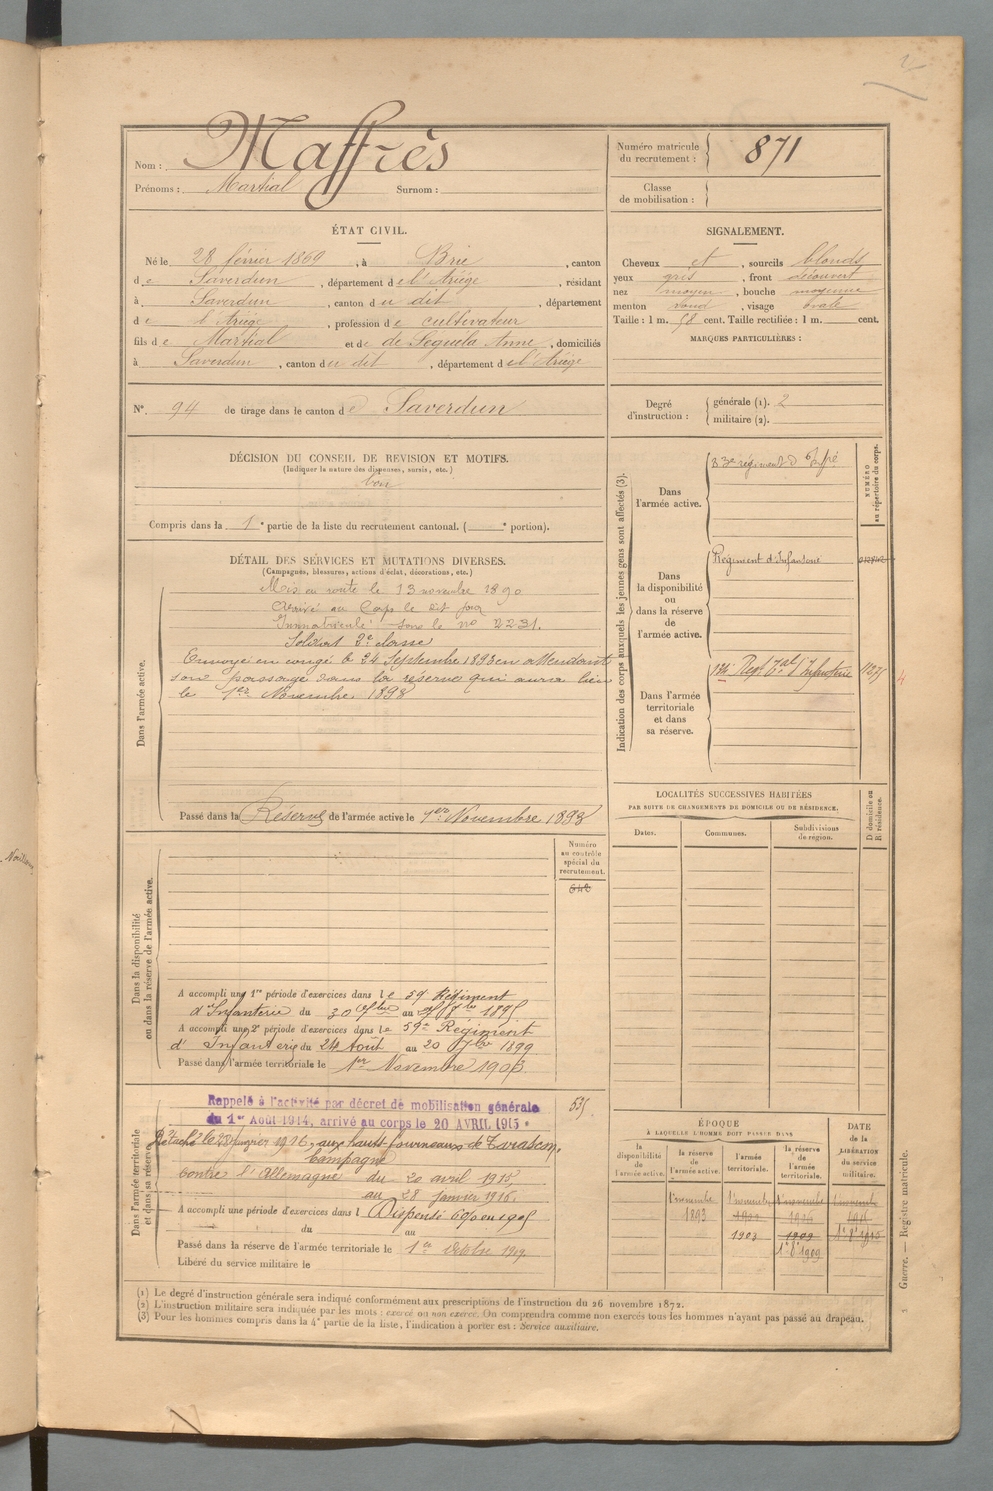 Nom : Maffrès
Prénoms : Martial Surnom :
Numéro matricule du recrutement : 871
Classe de mobilisation :
ÉTAT CIVIL.
Né le 28 février 1869, à Brie, canton
de Saverdun, département de l'Ariège, résidant
à Saverdun, canton du dit, département
de l'Ariège, profession de cultivateur
fils de Martial et de de Séguéla Anne, domiciliés
à Saverdun, canton du dit, département de l'Ariège
N° 94 de tirage dans le canton de Saverdun
SIGNALEMENT.
Cheveux et, sourcils blonds
yeux gris, front découvert
nez moyen, bouche moyenne
menton rond, visage ovale
Taille : 1 m. 58 cent. Taille rectifiée : 1 m. cent.
MARQUES PARTICULIÈRES :
Degré d'instruction : générale (1). 2
militaire (2).
DÉCISION DU CONSEIL DE REVISION ET MOTIFS.
(Indiquer la nature des dispenses, sursis, etc.)
bon
Compris dans la 1e partie de la liste du recrutement cantonal. ( e portion).
DÉTAIL DES SERVICES ET MUTATIONS DIVERSES.
(Campagnes, blessures, actions d'éclat, décorations, etc.)
Dans l'armée active.
Mis en route le 13 novembre 1890
Arrivé au Corps le dit jour
Immatriculé sous le no 2231.
Soldat 2e classe
Envoyé en congé le 24 Septembre 1893 en attendant
son passage dans la réserve qui aura lieu
le 1er Novembre 1893
Passé dans la Réserve de l'armée active le 1er Novembre 1893
Indication des corps auxquels les jeunes gens sont affectés (3).
NUMÉRO au répertoire du corps.
Dans l'armée active.
83e régiment d'Infrie
Dans la disponibilité ou dans la réserve de l'armée active.
Régiment d'Infanterie
Dans l'armée territoriale et dans sa réserve.
134 Regt Tal d'Infanterie
LOCALITÉS SUCCESSIVES HABITÉES
PAR SUITE DE CHANGEMENTS DE DOMICILE OU DE RÉSIDENCE.
Dates. Communes. Subdivisions de région. D domicile ou R résidence.
Dans la disponibilité ou dans la réserve de l'armée active.
Numéro au contrôle spécial du recrutement.
642
A accompli une 1re période d'exercices dans le 59e Régiment
d'Infanterie du 30 7bre au 8bre 1895
A accompli une 2e période d'exercices dans le 59e Régiment
d'Infanterie du 24 Août au 20 7bre 1899
Passé dans l'armée territoriale le 1er Novembre 1903
Dans l'armée territoriale et dans sa réserve.
535
Rappelé à l'activité par décret de mobilisation générale
du 1er Août 1914, arrivé au corps le 20 AVRIL 1915.
Détaché le 28 janvier 1916, aux hauts fourneaux de Tarascon.
Campagne
contre l'Allemagne du 20 avril 1915,
au 28 janvier 1916.
A accompli une période d'exercices dans l Dispensé 6% en 1905
du au
Passé dans la réserve de l'armée territoriale le 1er Octobre 1909
Libéré du service militaire le
ÉPOQUE
À LAQUELLE L'HOMME DOIT PASSER DANS
la disponibilité de l'armée active. la réserve de l'armée active. l'armée territoriale. la réserve de l'armée territoriale.
DATE de la LIBÉRATION du service militaire.
1r novembre 1r novembre 1r novembre 1r novembre
1893
1903 1909
1r 8e 1909
Guerre. — Registre matricule.
(1) Le degré d'instruction générale sera indiqué conformément aux prescriptions de l'instruction du 26 novembre 1872.
(2) L'instruction militaire sera indiquée par les mots : exercé ou non exercé. On comprendra comme non exercés tous les hommes n'ayant pas passé au drapeau.
(3) Pour les hommes compris dans la 4e partie de la liste, l'indication à porter est : Service auxiliaire.